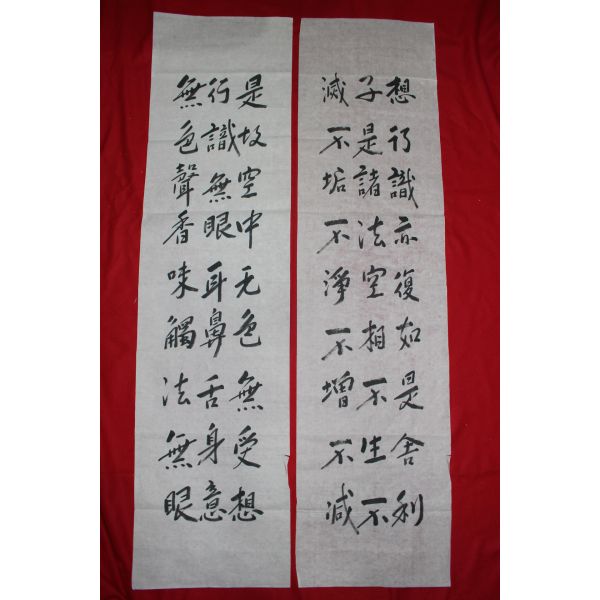 想行識亦復如是舍利
子是諸法空相不生不
滅不垢不淨不增不減
是故空中无色無受想
行識無眼耳鼻舌身意
無色聲香味觸法無眼